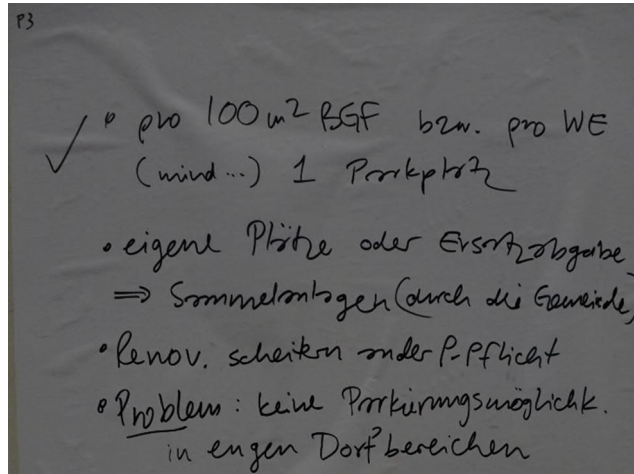 P3
✓ • pro 100 m² BGF bzw. pro WE
(mind...) 1 Parkplatz
• eigene Plätze oder Ersatzabgabe
⇒ Sammelanlagen (durch die Gemeinde)
• Renov. scheitern an der P-Pflicht
• Problem: keine Parkierungsmöglichk.
in engen Dorfbereichen